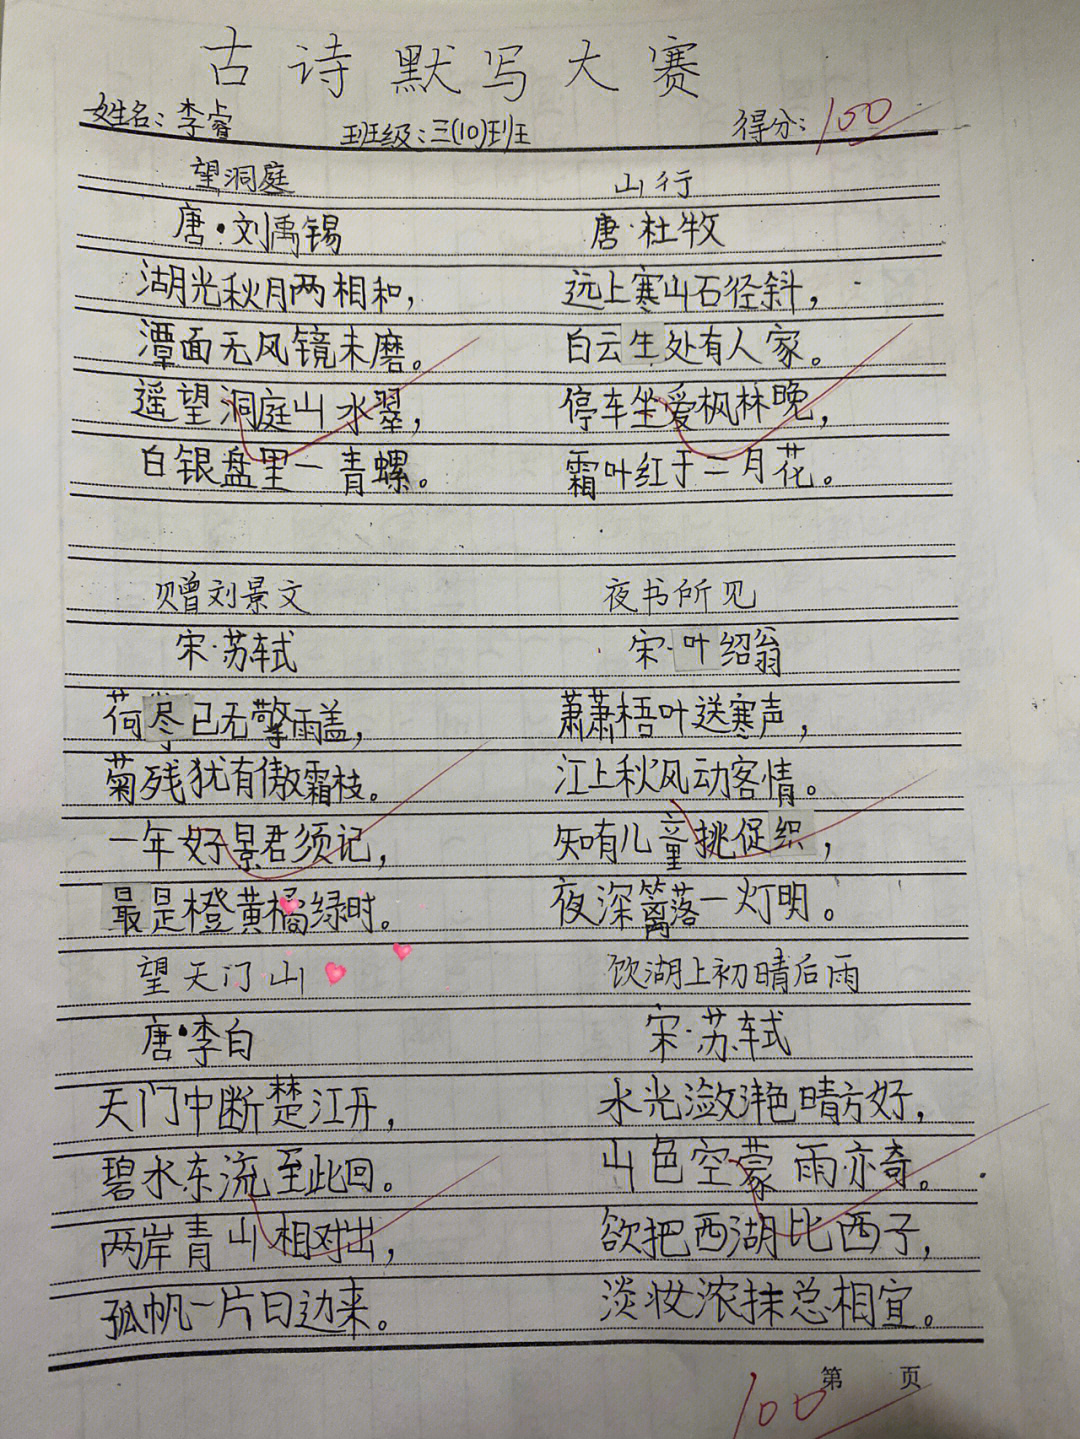 古诗默写大赛
姓名：李睿 班级：三(10)班 得分：100
望洞庭
唐·刘禹锡
湖光秋月两相和，
潭面无风镜未磨。
遥望洞庭山水翠，
白银盘里一青螺。
山行
唐·杜牧
远上寒山石径斜，
白云生处有人家。
停车坐爱枫林晚，
霜叶红于二月花。
赠刘景文
宋·苏轼
荷尽已无擎雨盖，
菊残犹有傲霜枝。
一年好景君须记，
最是橙黄橘绿时。
夜书所见
宋·叶绍翁
萧萧梧叶送寒声，
江上秋风动客情。
知有儿童挑促织，
夜深篱落一灯明。
望天门山
唐·李白
天门中断楚江开，
碧水东流至此回。
两岸青山相对出，
孤帆一片日边来。
饮湖上初晴后雨
宋·苏轼
水光潋滟晴方好，
山色空蒙雨亦奇。
欲把西湖比西子，
淡妆浓抹总相宜。
第 页
100